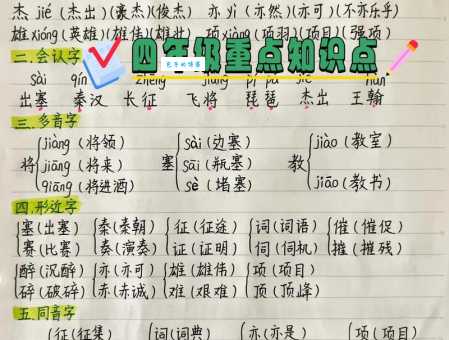 杰 jié (杰出)(豪杰)(俊杰) 亦 yì (亦然)(亦可)(不亦乐乎)
雄 xióng (英雄)(雄伟)(雄壮) 项 xiàng (项羽)(项目)(强项)
四年级重点知识点
二.会认字
sài qín zhēng jiàng pí pa jié hàn
出塞 秦汉 长征 飞将 琵琶 杰出 王翰
三.多音字
将 jiàng (将领) jiāng (将来) qiāng (将进酒)
塞 sài (边塞) sāi (瓶塞) sè (堵塞)
教 jiào (教室) jiāo (教书)
四.形近字
塞(出塞) 秦(秦朝) 征(征途) 词(词语) 催(催促)
赛(比赛) 奏(演奏) 证(证明) 伺(伺机) 摧(摧残)
醉(沉醉) 亦(亦可) 雄(雄伟) 项(项目)
碎(破碎) 赤(赤诚) 难(艰难) 顶(顶峰)
五.同音字
征(征集) 词(词典) 亦(亦是) 项(项目)